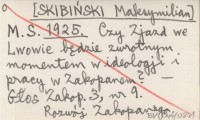 [SKIBIŃSKI Maksymilian]
M.S. 1925. Czy Zjazd we
Lwowie będzie zwrotnym
momentem w ideologji i
pracy w Zakopanem? —
Głos Zakop. 3, nr 9.
Rozwój Zakopanego.